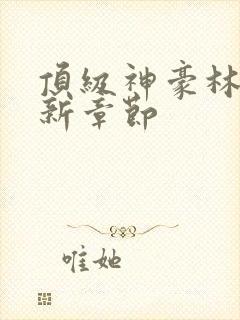 頂級神豪林
新章節
唯她